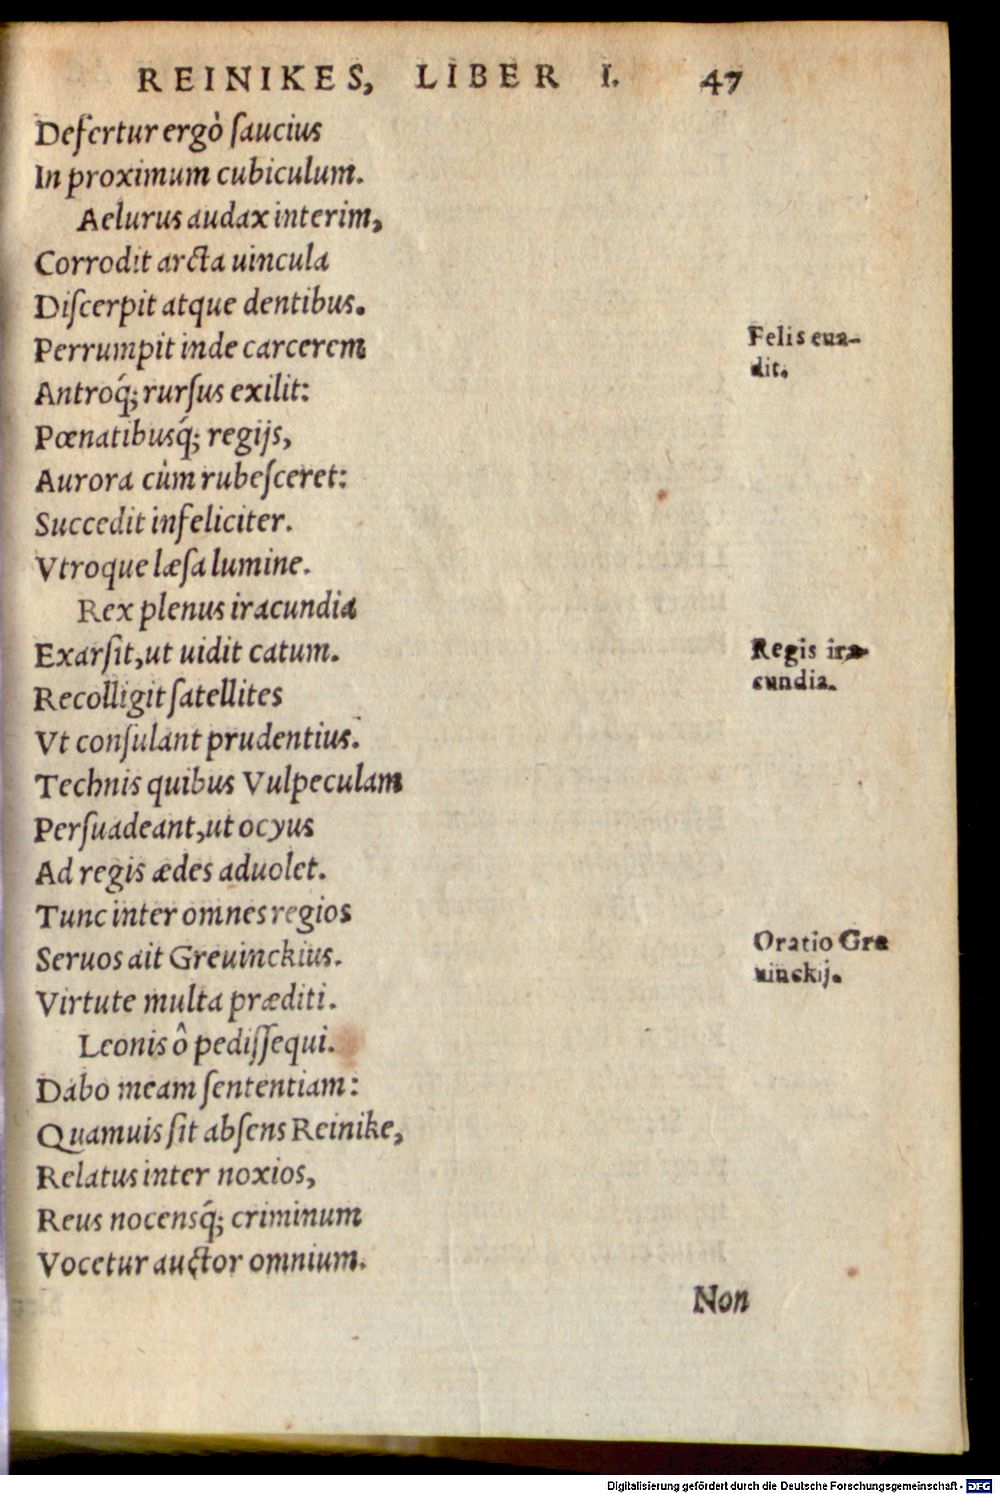 REINIKES, LIBER I. 47
Defertur ergò ſaucius
In proximum cubiculum.
Aelurus audax interim,
Corrodit arcta uincula
Diſcerpit atque dentibus.
Perrumpit inde carcerem
Felis eua-
dit.
Antroq́; rurſus exilit:
Pœnatibusq́; regijs,
Aurora cùm rubeſceret:
Succedit infeliciter.
Vtroque læſa lumine.
Rex plenus iracundia
Exarſit, ut uidit catum.
Regis ira-
cundia.
Recolligit ſatellites
Vt conſulant prudentius.
Technis quibus Vulpeculam
Perſuadeant, ut ocyus
Ad regis ædes aduolet.
Tunc inter omnes regios
Seruos ait Greuinckius.
Oratio Gre
uinckij.
Virtute multa præditi.
Leonis ô pediſſequi.
Dabo meam ſententiam:
Quamuis ſit abſens Reinike,
Relatus inter noxios,
Reus nocensq́; criminum
Vocetur auctor omnium.
Non
Digitalisierung gefördert durch die Deutsche Forschungsgemeinschaft - DFG